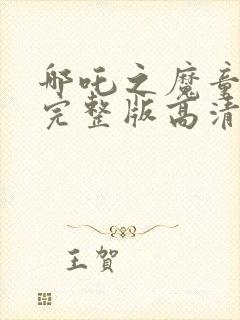 哪吒之魔童
完整版高清
王贺